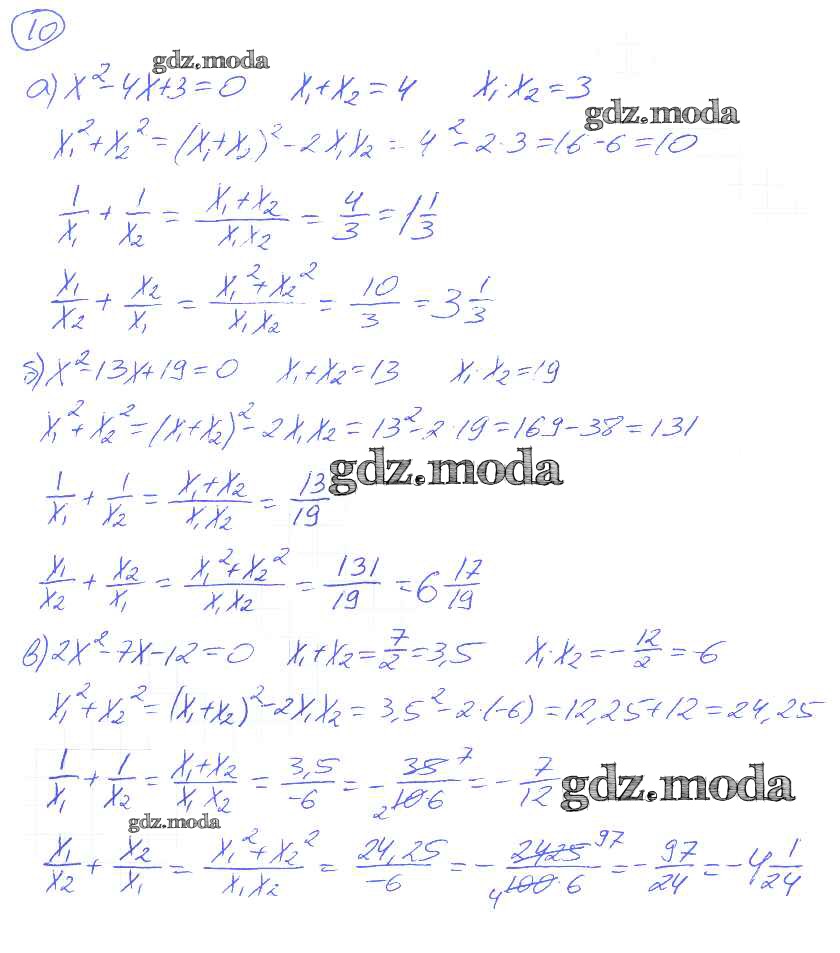 10
gdz.moda
а) x² - 4x + 3 = 0 x₁ + x₂ = 4 x₁·x₂ = 3
gdz.moda
x₁² + x₂² = (x₁ + x₂)² - 2x₁x₂ = 4² - 2·3 = 16 - 6 = 10
1/x₁ + 1/x₂ = (x₁ + x₂)/(x₁x₂) = 4/3 = 1 1/3
x₁/x₂ + x₂/x₁ = (x₁² + x₂²)/(x₁x₂) = 10/3 = 3 1/3
б) x² - 13x + 19 = 0 x₁ + x₂ = 13 x₁·x₂ = 19
x₁² + x₂² = (x₁ + x₂)² - 2x₁x₂ = 13² - 2·19 = 169 - 38 = 131
gdz.moda
1/x₁ + 1/x₂ = (x₁ + x₂)/(x₁x₂) = 13/19
x₁/x₂ + x₂/x₁ = (x₁² + x₂²)/(x₁x₂) = 131/19 = 6 17/19
в) 2x² - 7x - 12 = 0 x₁ + x₂ = 7/2 = 3,5 x₁·x₂ = -12/2 = -6
x₁² + x₂² = (x₁ + x₂)² - 2x₁x₂ = 3,5² - 2·(-6) = 12,25 + 12 = 24,25
1/x₁ + 1/x₂ = (x₁ + x₂)/(x₁x₂) = 3,5/-6 = - 35 7/2 10·6 = - 7/12
gdz.moda
gdz.moda
x₁/x₂ + x₂/x₁ = (x₁² + x₂²)/(x₁x₂) = 24,25/-6 = - 2425 97/4 100·6 = - 97/24 = -4 1/24